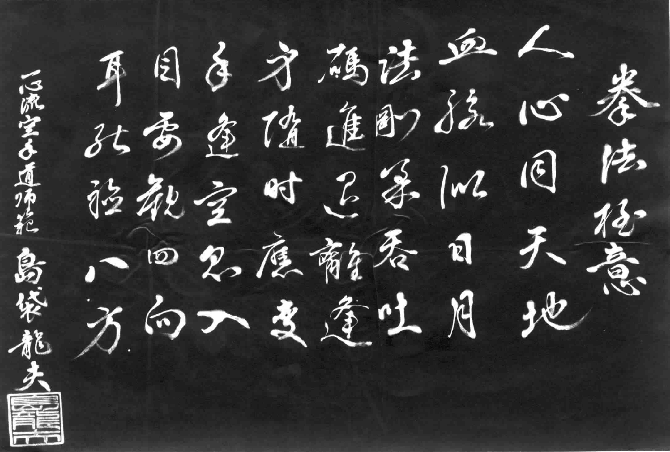 拳法極意
人心同天地
血脈似日月
法剛柔吞吐
碼進退離逢
身隨時應變
手逢空忽入
目要觀四向
耳能聽八方
一心流空手道師範 島袋龍夫